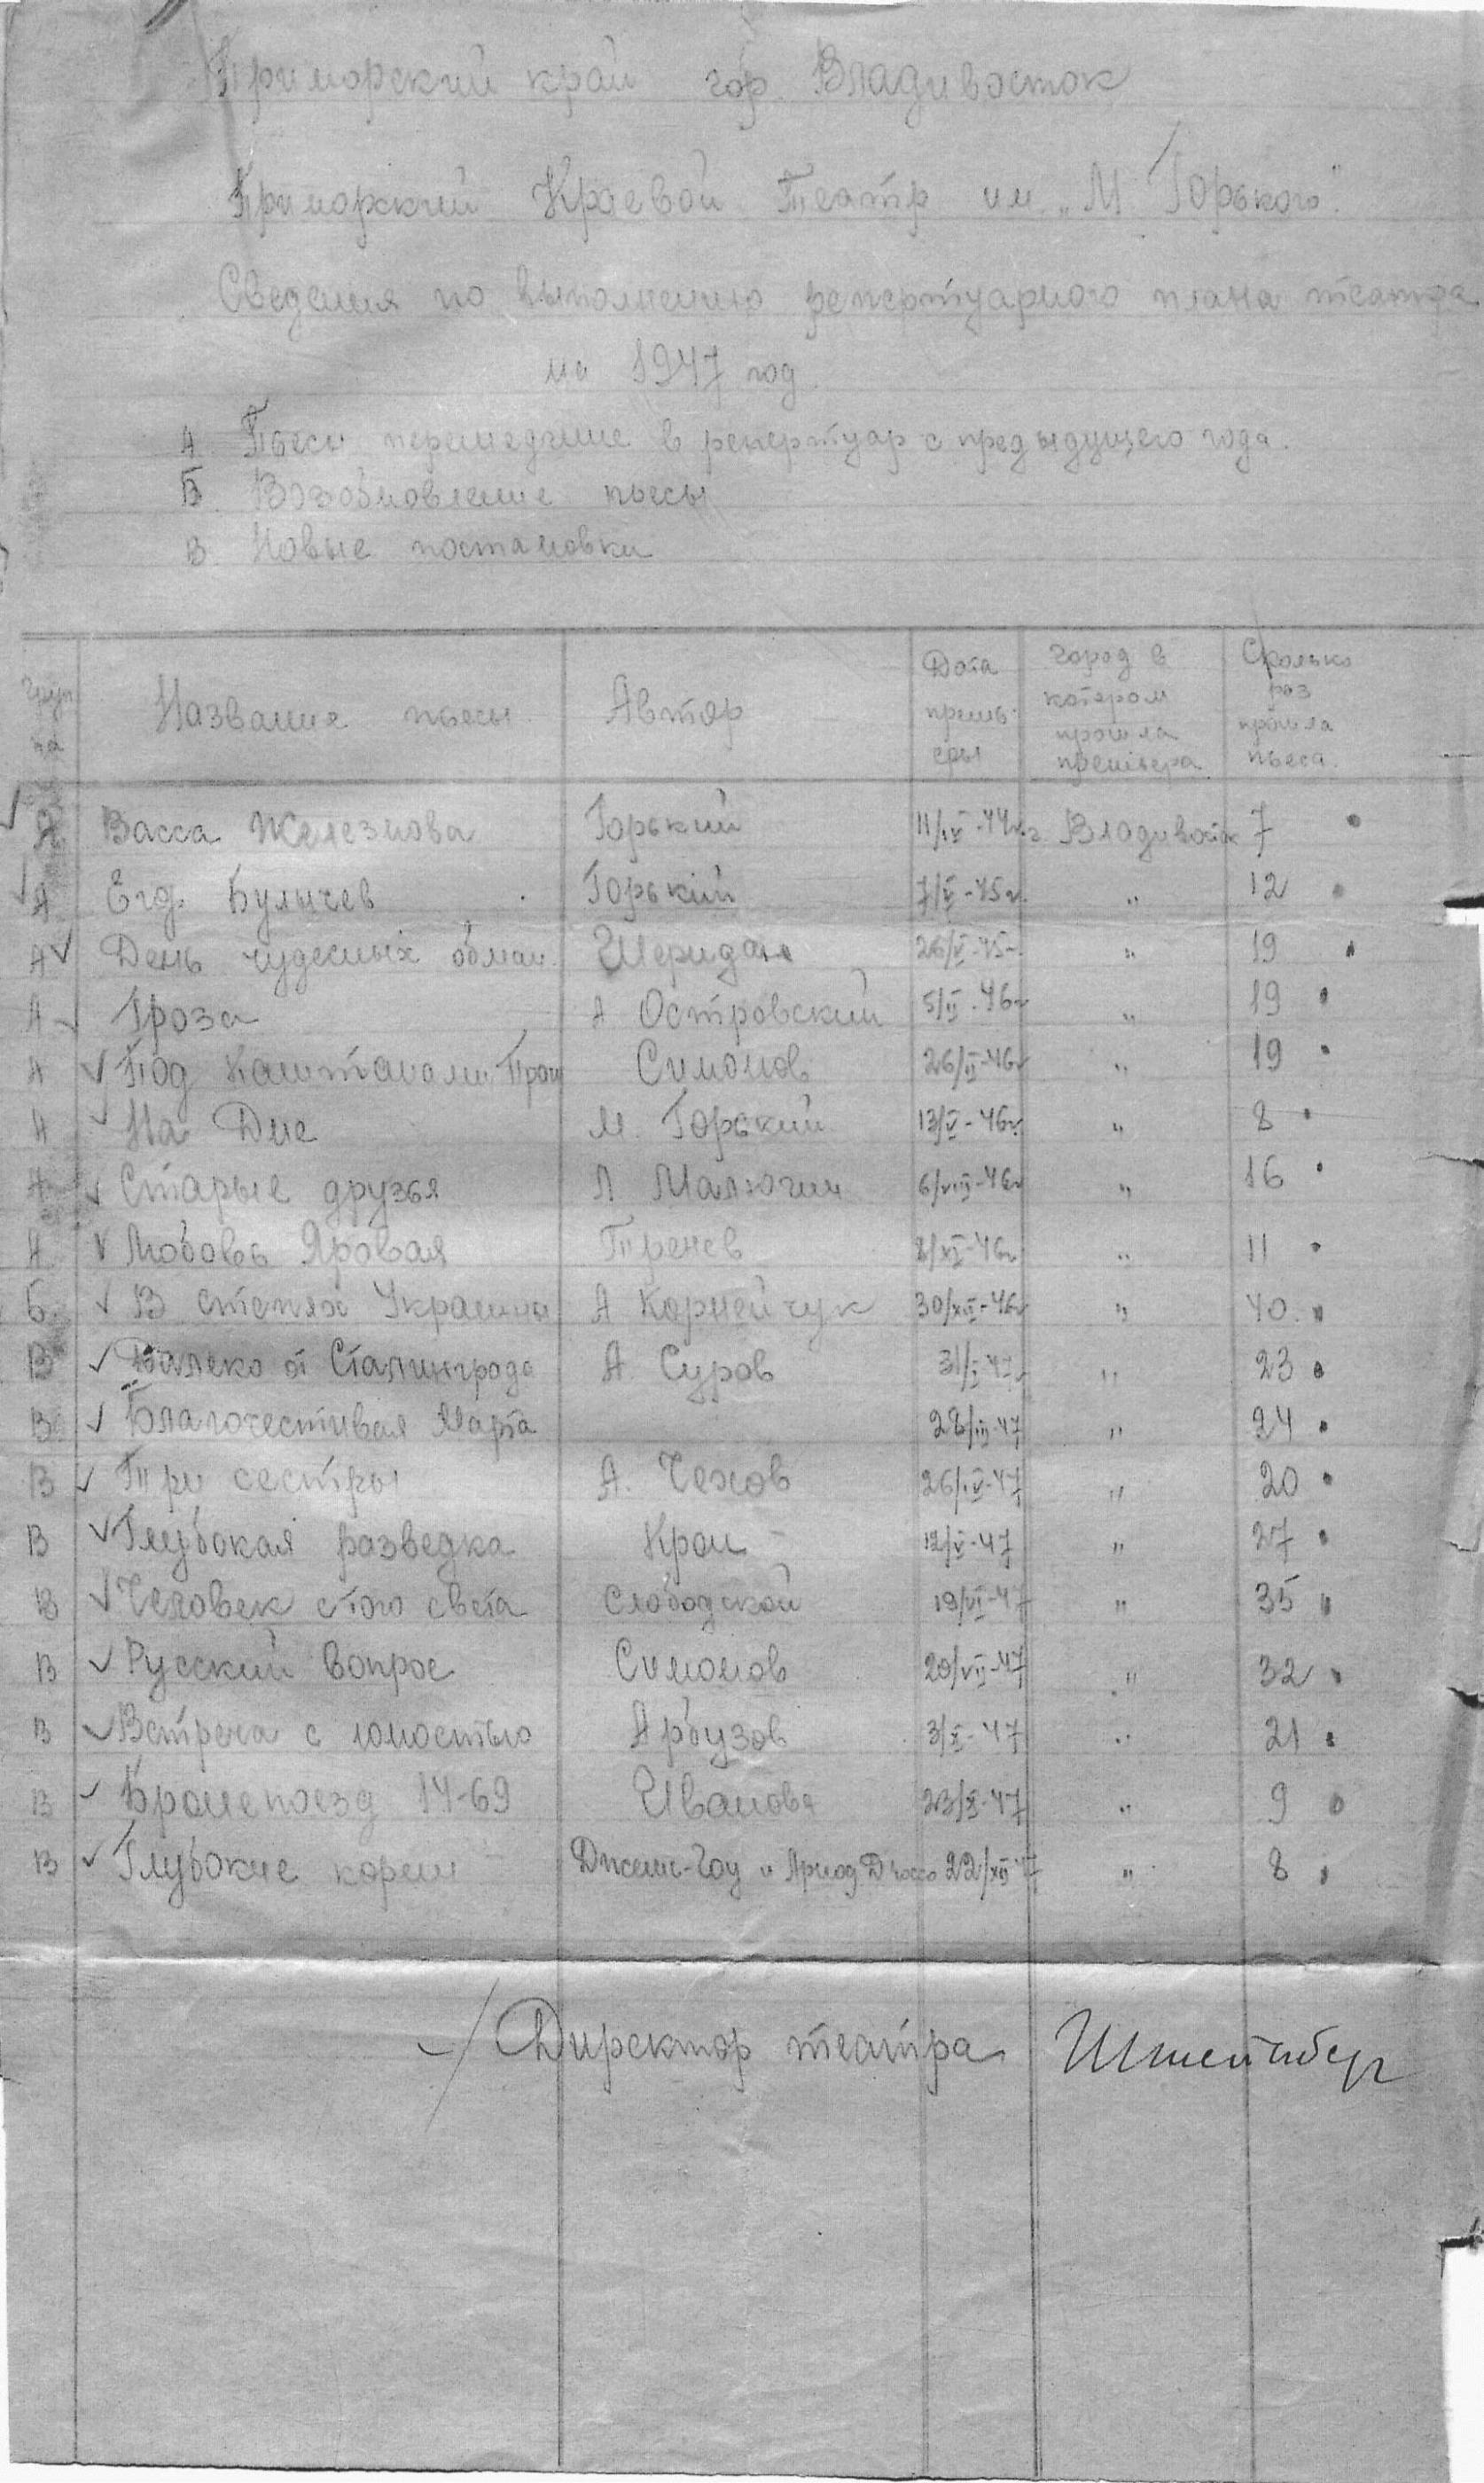 Приморский край гор. Владивосток
Приморский Краевой Театр им. „М. Горького"
Сведения по выполнению репертуарного плана театра
на 1947 год.
А. Пьесы перешедшие в репертуар с предыдущего года.
Б. Возобновление пьесы
В. Новые постановки
Группа Название пьесы Автор Дата премьеры Город в котором прошла премьера Сколько раз прошла пьеса.
А Васса Железнова Горький 11/IV-44г. г. Владивосток 7
А Егор Булычев Горький 7/V-45г. " 12
А День чудесных обман. Шеридан 26/V-45г. " 19
А Гроза А Островский 5/II-46г " 19
А Под каштанами Праги Симонов 26/II-46г " 19
А На Дне М. Горький 13/V-46г. " 8
А Старые друзья Л Малюгин 6/VIII-46г " 16
А Любовь Яровая Тренев 8/XI-46г " 11
Б. В степях Украины А Корнейчук 30/XII-46г " 40.
В Далеко от Сталинграда А. Суров 31/I-47г " 23
В Благочестивая Марта 28/III-47 " 24
В Три сестры А. Чехов 26/IV-47 " 20
В Глубокая разведка Крон 12/V-47 " 27
В Человек с того света Слободской 19/VI-47 " 35
В Русский вопрос Симонов 29/VII-47 " 32
В Встреча с юностью Арбузов 3/X-47 " 21
В Бронепоезд 14-69 Иванова 23/X-47 " 9
В Глубокие корни Джемс-Гоу и Арнод Дюссо 22/XII 47 " 8
Директор театра